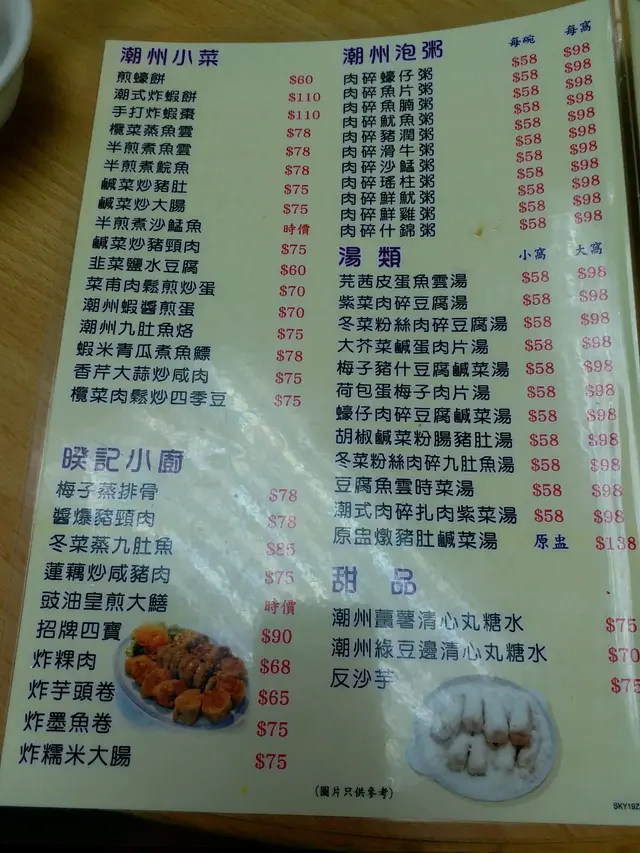 潮州小菜
煎蠔餅 $60
潮式炸蝦餅 $110
手打炸蝦棗 $110
欖菜蒸魚雲 $78
半煎煮魚雲 $78
半煎煮鯇魚 $78
鹹菜炒豬肚 $75
鹹菜炒大腸 $75
半煎煮沙鯭魚 時價
鹹菜炒豬頸肉 $75
韭菜鹽水豆腐 $60
菜甫肉鬆煎炒蛋 $70
潮州蝦醬煎蛋 $70
潮州九肚魚烙 $75
蝦米青瓜煮魚鰾 $78
香芹大蒜炒咸肉 $75
欖菜肉鬆炒四季豆 $75
暌記小廚
梅子蒸排骨 $78
醬爆豬頸肉 $78
冬菜蒸九肚魚 $85
蓮藕炒咸豬肉 $75
豉油皇煎大鱔 時價
招牌四寶 $90
炸粿肉 $68
炸芋頭卷 $65
炸墨魚卷 $75
炸糯米大腸 $75
潮州泡粥 每碗 每窩
肉碎蠔仔粥 $58 $98
肉碎魚片粥 $58 $98
肉碎魚腩粥 $58 $98
肉碎魷魚粥 $58 $98
肉碎豬潤粥 $58 $98
肉碎滑牛粥 $58 $98
肉碎沙鯭粥 $58 $98
肉碎瑤柱粥 $58 $98
肉碎鮮魷粥 $58 $98
肉碎鮮雞粥 $58 $98
肉碎什錦粥 $58 $98
湯類 小窩 大窩
芫茜皮蛋魚雲湯 $58 $98
紫菜肉碎豆腐湯 $58 $98
冬菜粉絲肉碎豆腐湯 $58 $98
大芥菜鹹蛋肉片湯 $58 $98
梅子豬什豆腐鹹菜湯 $58 $98
荷包蛋梅子肉片湯 $58 $98
蠔仔肉碎豆腐鹹菜湯 $58 $98
胡椒鹹菜粉腸豬肚湯 $58 $98
冬菜粉絲肉碎九肚魚湯 $58 $98
豆腐魚雲時菜湯 $58 $98
潮式肉碎扎肉紫菜湯 $58 $98
原盅燉豬肚鹹菜湯 原盅 $138
甜品
潮州薑薯清心丸糖水 $75
潮州綠豆邊清心丸糖水 $70
反沙芋 $75
(圖片只供參考)
SKY19Z